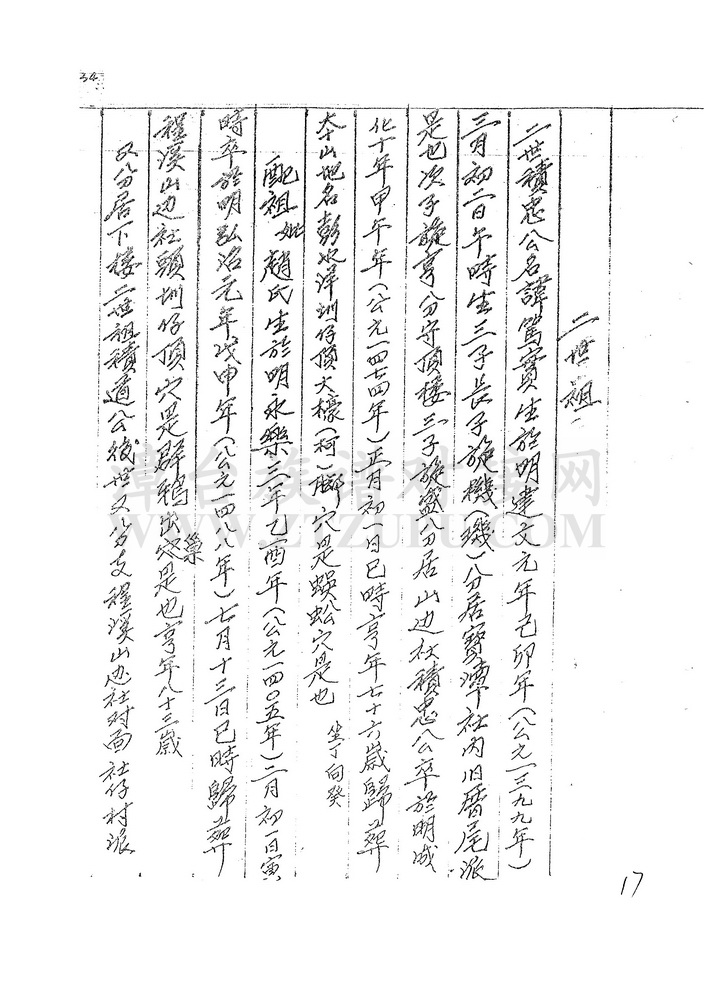 二世祖
二世積忠公名諱篤實生於明建文元年己卯年(公元一三九九年)
三月初二日午時生三子長子旋機(璣)分居寶潭社內旧厝尾派
是也次子旋亨分守頂樓三子旋盛分居山边社積忠公卒於明成
化十年甲午年(公元一四七四年)正月初一日巳時亨年七十六歲歸葬
大山地名彭水洋圳仔頂大檺(柯)腳穴是蜈蚣穴是也 坐丁向癸
配祖妣趙氏生於明永樂三年乙酉年(公元一四〇五年)二月初一日寅
時卒於明弘治元年戊申年(公元一四八八年)七月十三日巳時歸葬
程溪山边社頭圳仔頂穴是 鴉出巢穴是也亨年八十三歲
又分居下樓二世祖積道公後世又分支程溪山边社对面社仔村派
17
34
漳台族谱对接网
WWW.ZTZUPU.COM